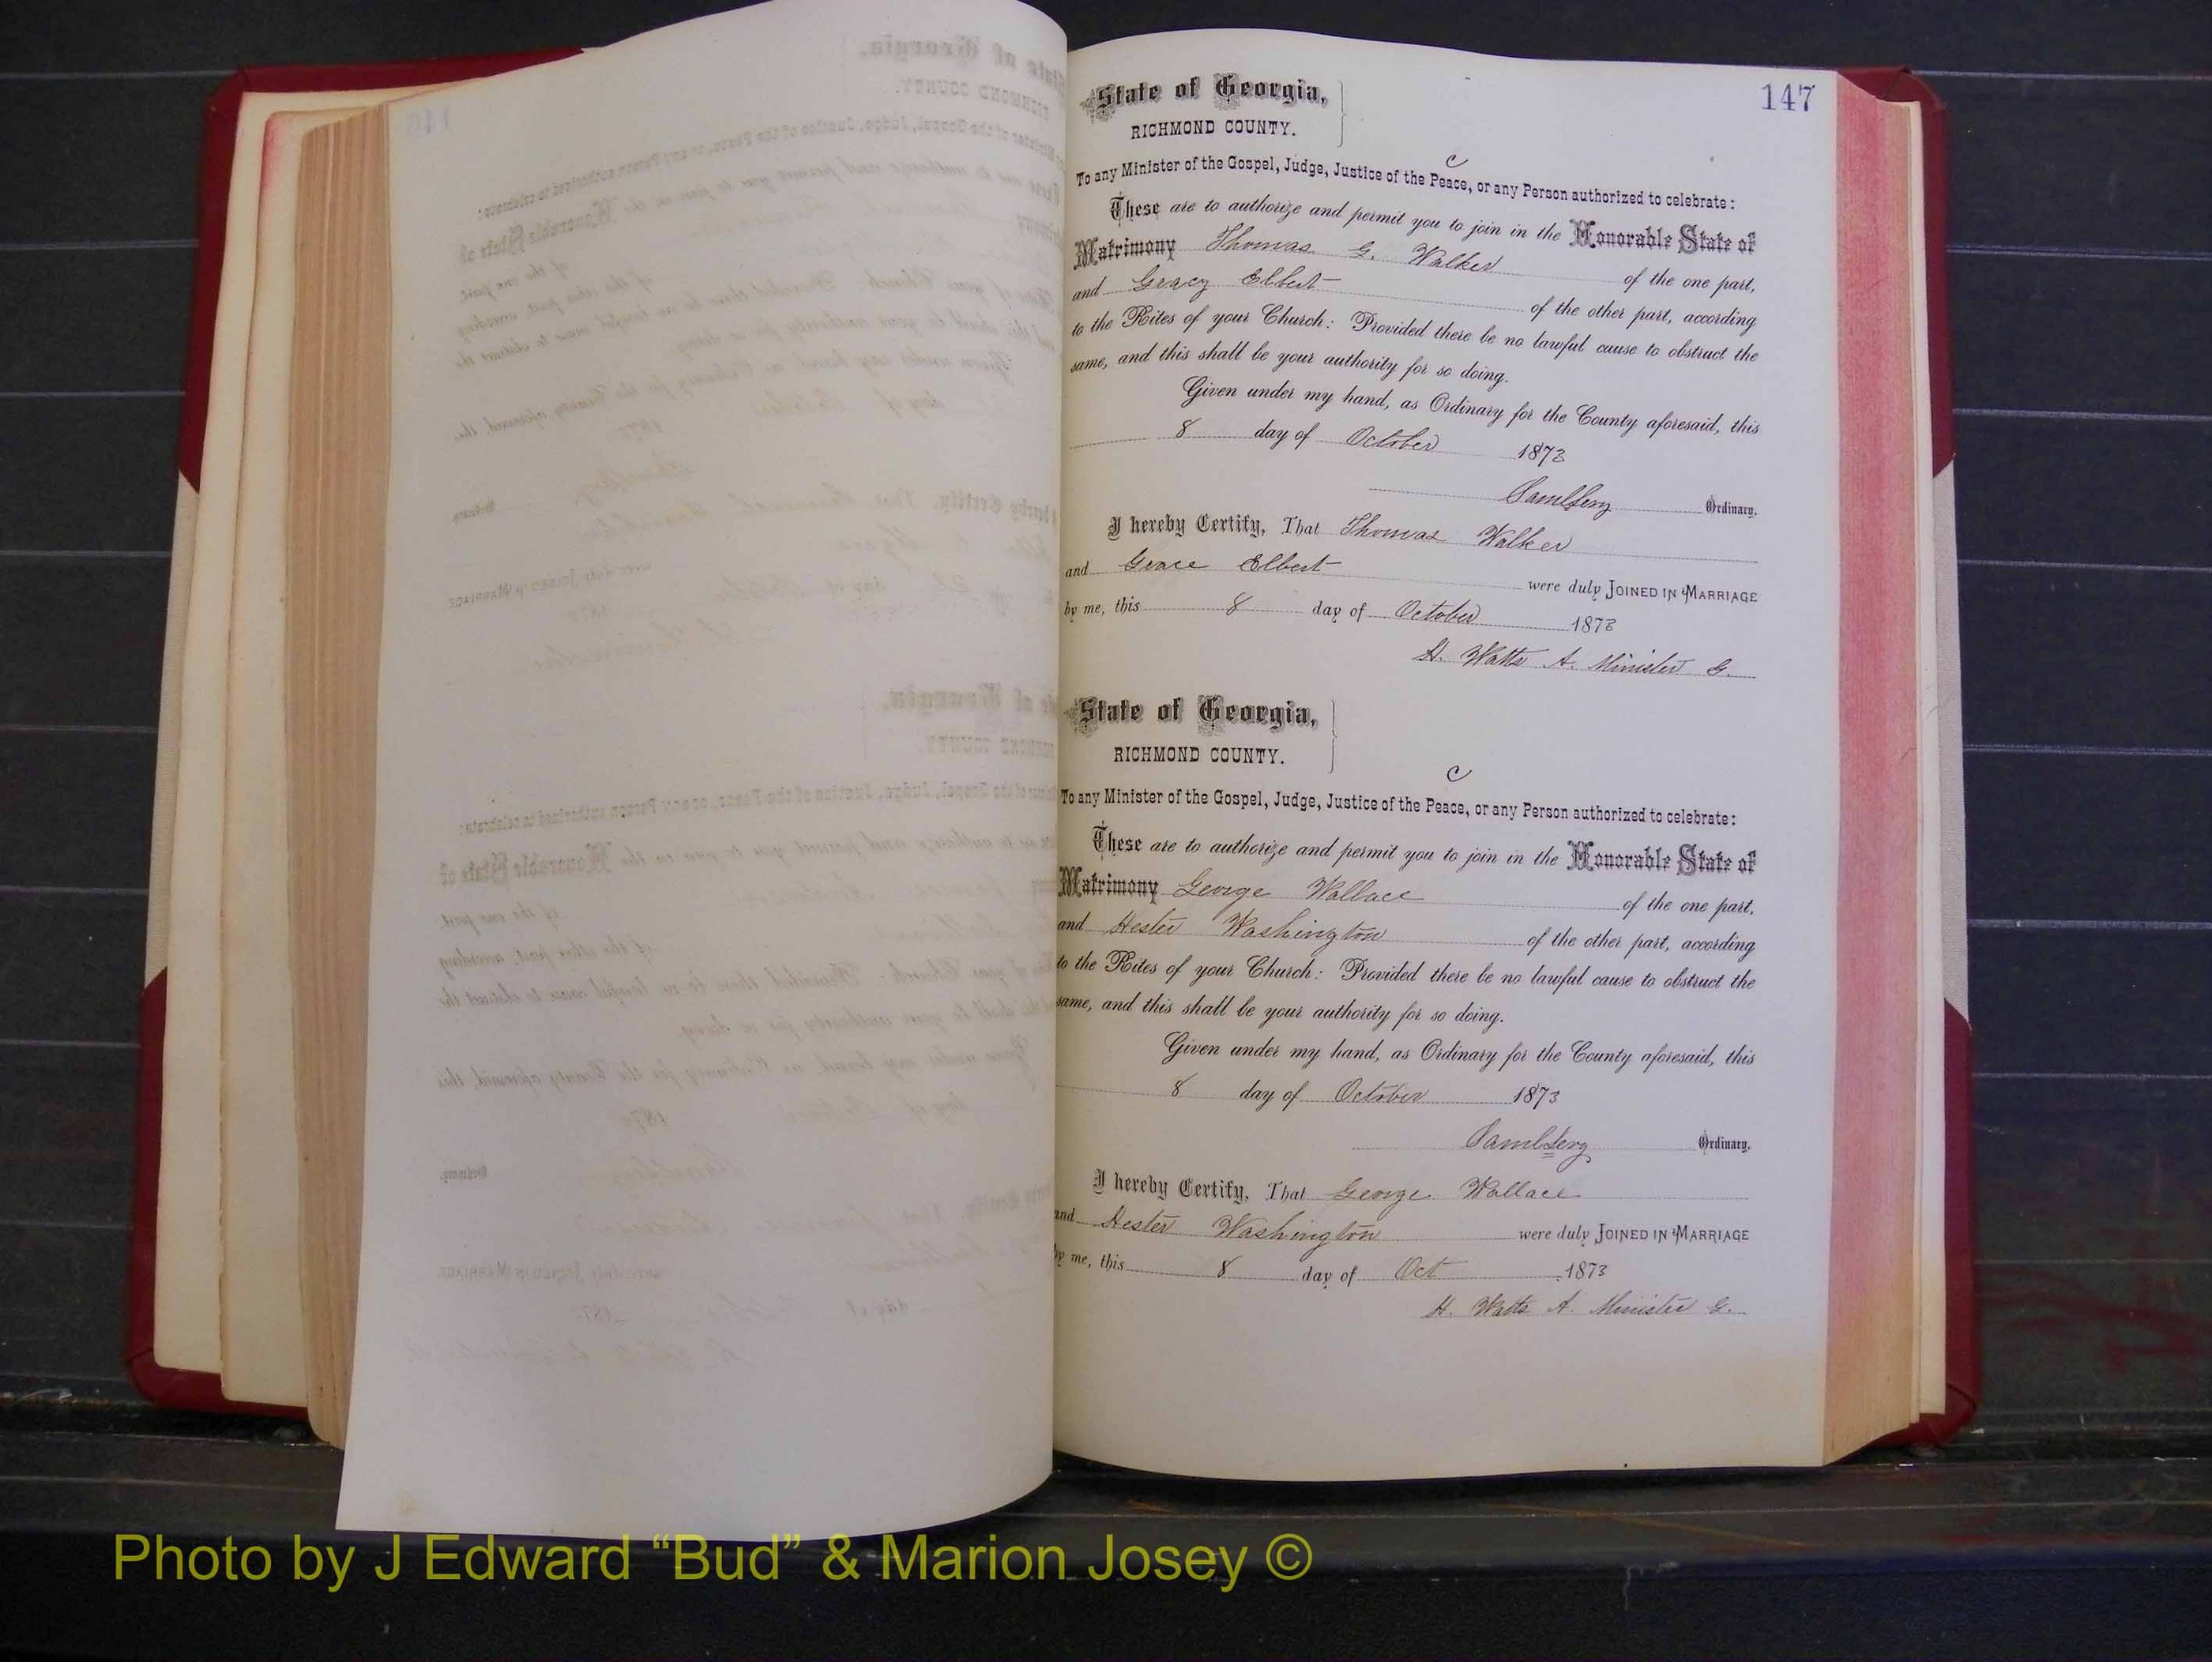 147
State of Georgia,
RICHMOND COUNTY.
C
To any Minister of the Gospel, Judge, Justice of the Peace, or any Person authorized to celebrate:
These are to authorize and permit you to join in the Honorable State of
Matrimony Thomas G. Walker of the one part,
and Gracy Elbert of the other part, according
to the Rites of your Church: Provided there be no lawful cause to obstruct the
same, and this shall be your authority for so doing.
Given under my hand, as Ordinary for the County aforesaid, this
8 day of October 1873
Saml Levy Ordinary.
I hereby Certify, That Thomas Walker
and Grace Elbert were duly JOINED IN MARRIAGE
by me, this 8 day of October 1873
H. Watts A. Minister G.
State of Georgia,
RICHMOND COUNTY.
C
To any Minister of the Gospel, Judge, Justice of the Peace, or any Person authorized to celebrate:
These are to authorize and permit you to join in the Honorable State of
Matrimony George Wallace of the one part,
and Hester Washington of the other part, according
to the Rites of your Church: Provided there be no lawful cause to obstruct the
same, and this shall be your authority for so doing.
Given under my hand, as Ordinary for the County aforesaid, this
8 day of October 1873
Saml Levy Ordinary.
I hereby Certify, That George Wallace
and Hester Washington were duly JOINED IN MARRIAGE
by me, this 8 day of Oct 1873
H. Watts A. Minister G.
Photo by J Edward “Bud” & Marion Josey ©